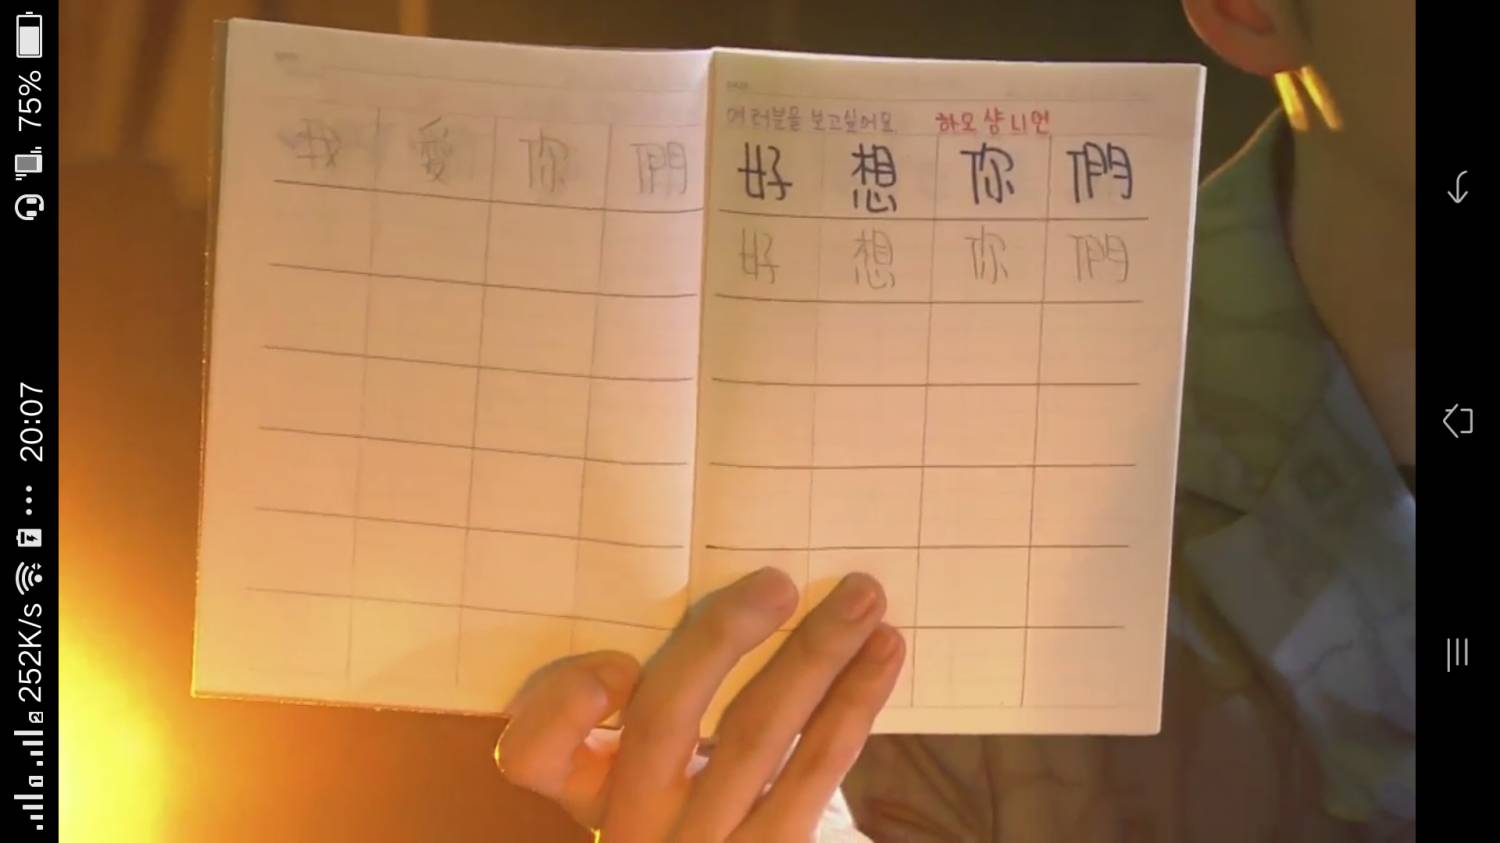 75%
20:07
252K/s
我 愛 你 們
여러분을 보고싶어요 하오 샹 니 먼
好 想 你 們
好 想 你 們